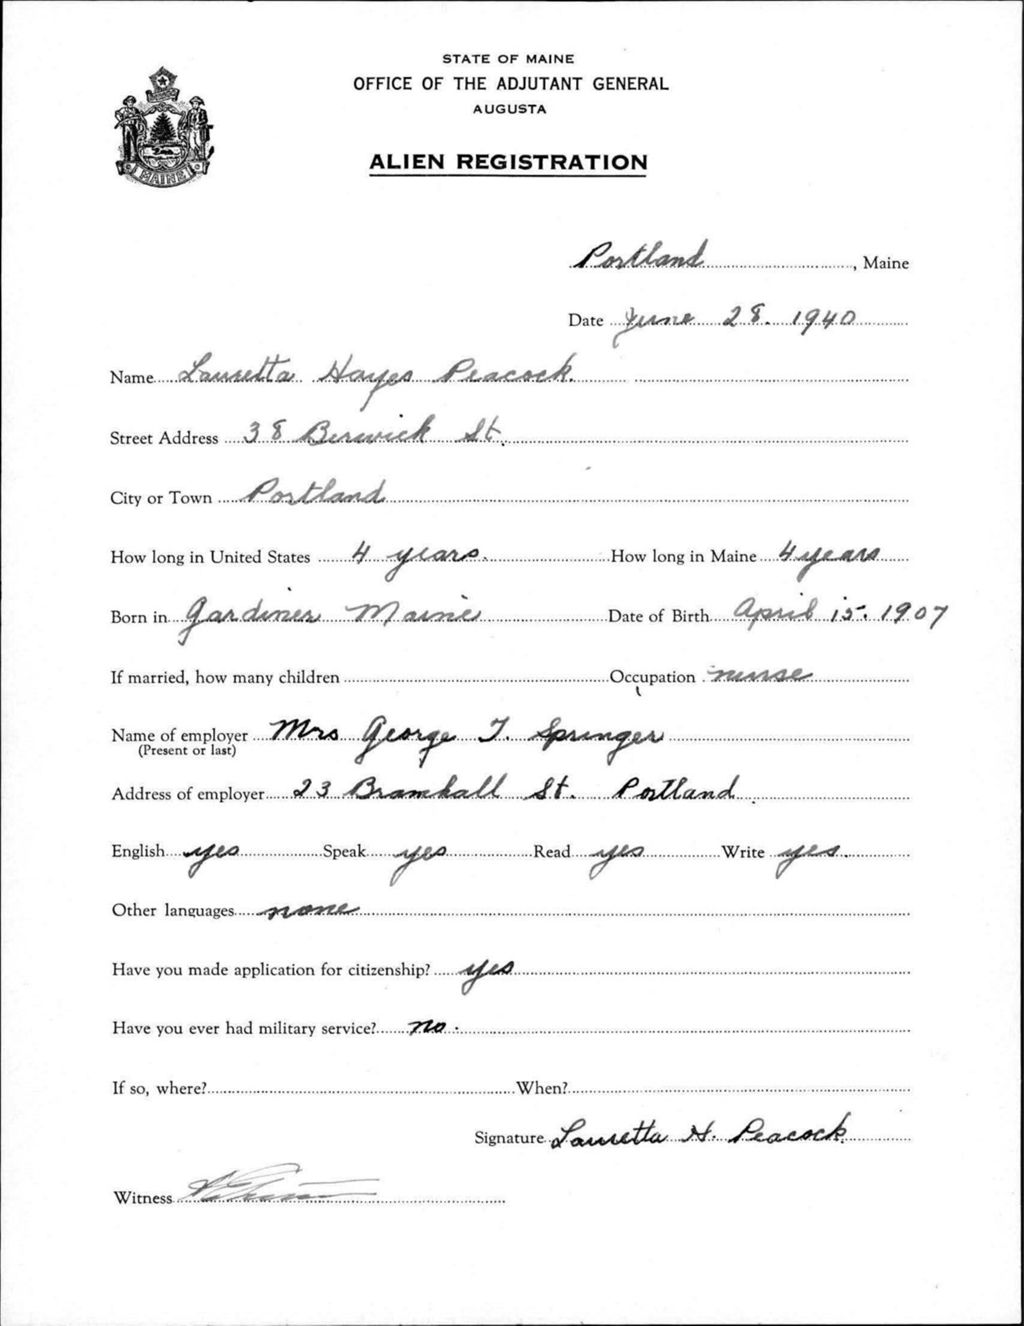 STATE OF MAINE
OFFICE OF THE ADJUTANT GENERAL
AUGUSTA
ALIEN REGISTRATION
MAINE
Portland, Maine
Date June 28. 1940
Name Lauretta Hayes Peacock.
Street Address 38 Berwick St.
City or Town Portland
How long in United States 4 years. How long in Maine 4 years
Born in Gardiner Maine Date of Birth April 15. 1907
If married, how many children Occupation nurse
Name of employer Mrs George T. Springer
(Present or last)
Address of employer 23 Bramhall St. Portland
English yes Speak yes Read yes Write yes.
Other languages none
Have you made application for citizenship? yes
Have you ever had military service? no.
If so, where? When?
Signature Lauretta H. Peacock.
Witness